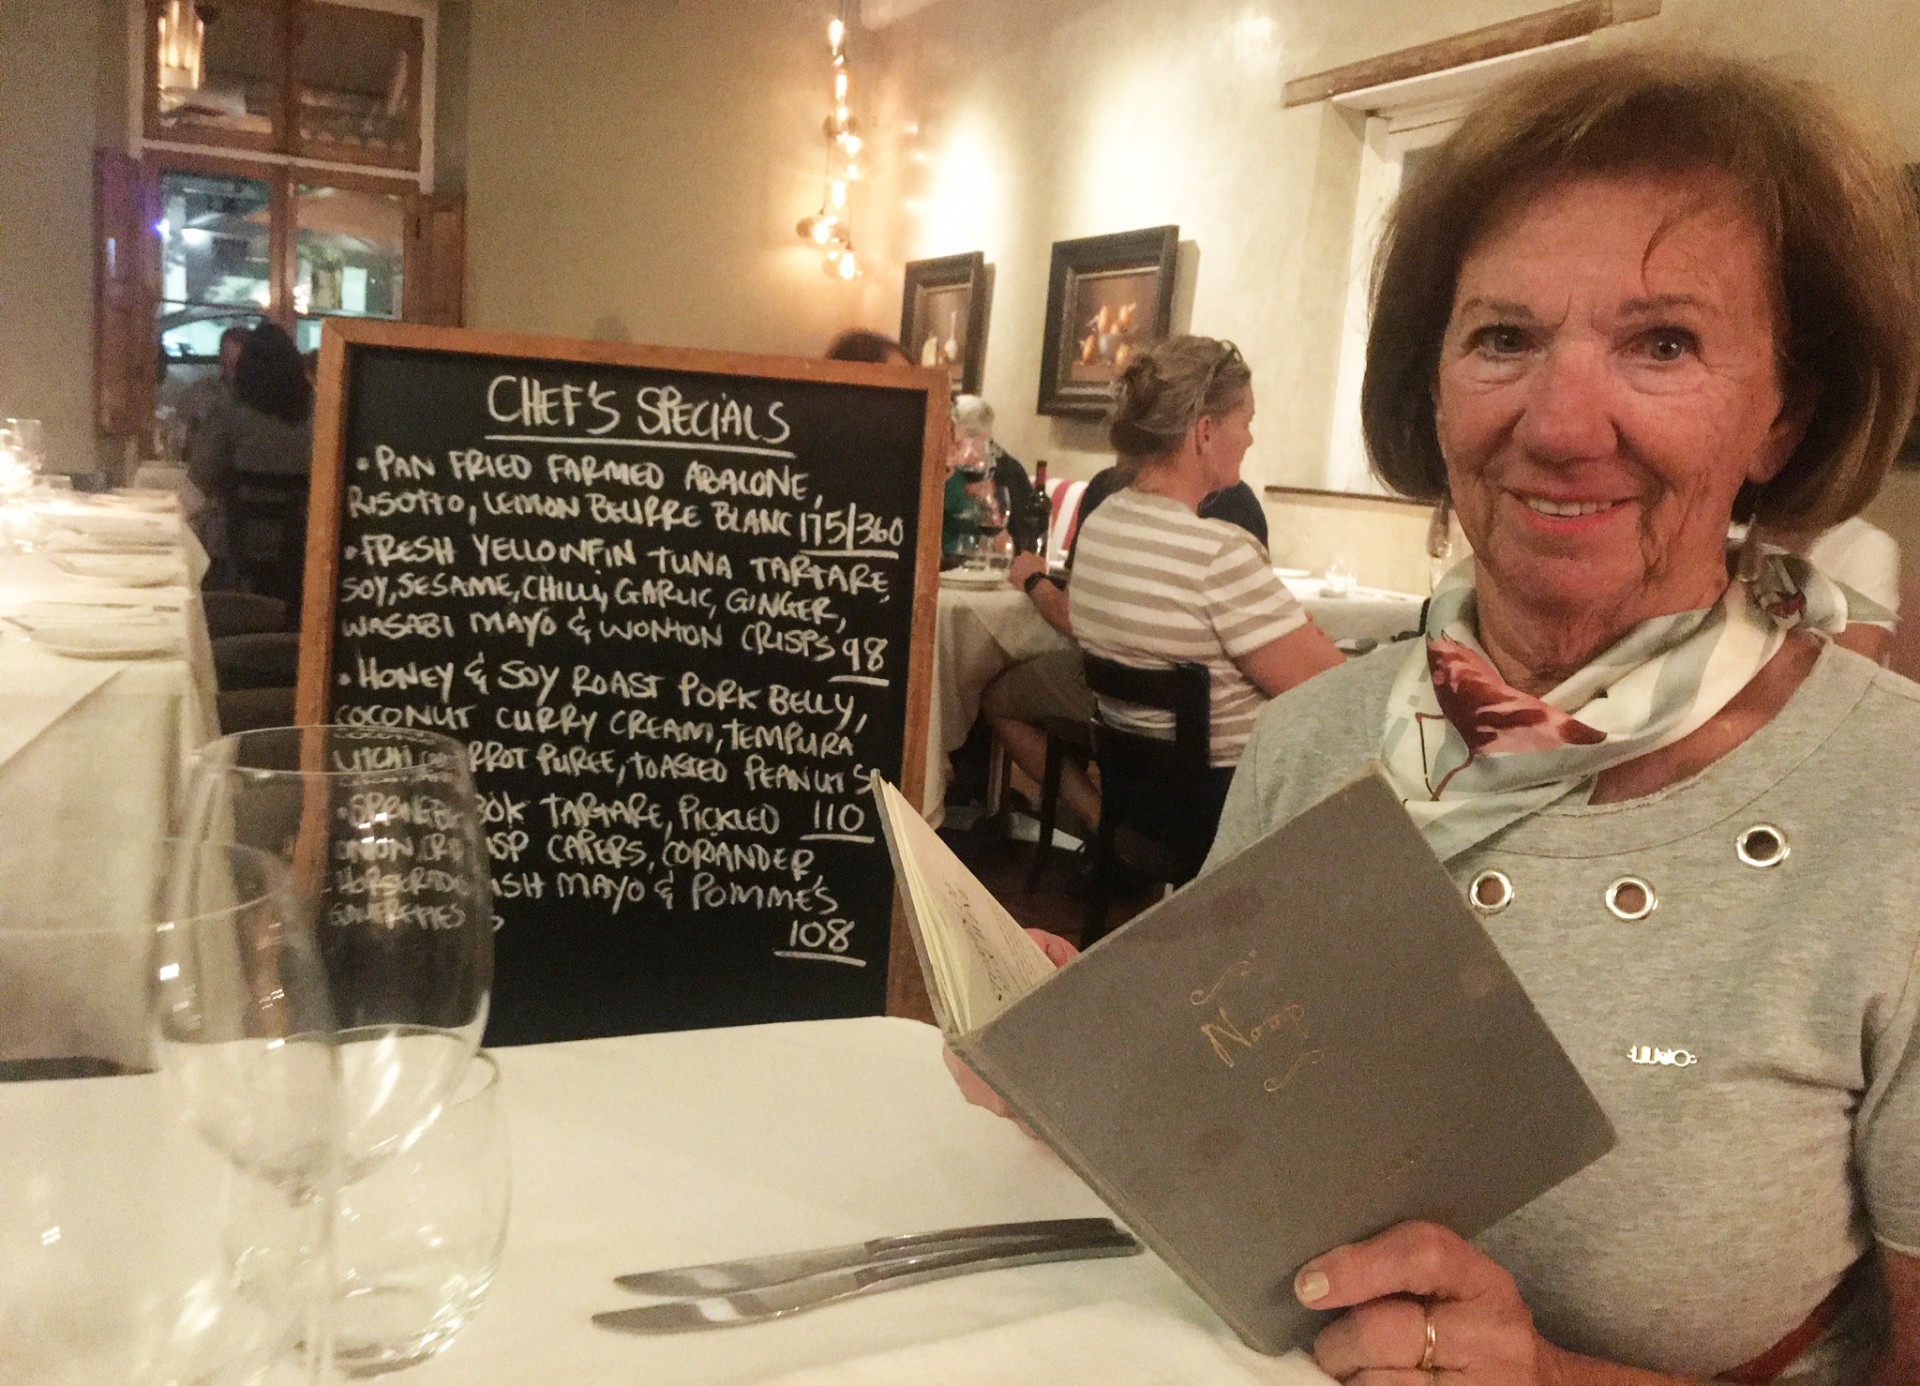 CHEF'S SPECIALS
• PAN FRIED FARMED ABALONE,
RISOTTO, LEMON BEURRE BLANC 175/360
• FRESH YELLOWFIN TUNA TARTARE,
SOY, SESAME, CHILLI, GARLIC, GINGER,
WASABI MAYO & WONTON CRISPS 98
• HONEY & SOY ROAST PORK BELLY,
COCONUT CURRY CREAM, TEMPURA
LITCHI, CARROT PUREE, TOASTED PEANUTS
110
• SPRINGBOK TARTARE, PICKLED
ONION, CRISP CAPERS, CORIANDER,
HORSERADISH MAYO & POMME'S
GAUFRETTES
108
Noop
LIU•JO